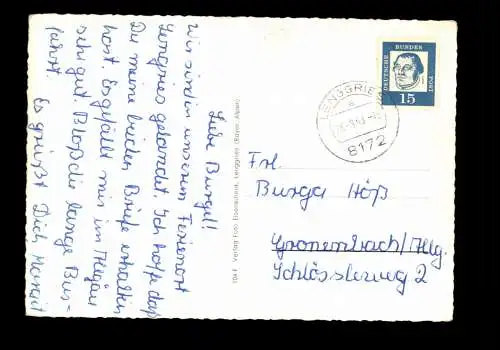 Liebe Burgel!
Wir sind in unserem Ferienort
Lengries gelandet. Ich hoffe daß
Du meine beiden Briefe erhalten
hast. Es gefällt mir im Allgäu
sehr gut. Bloß die lange Bus-
fahrt.
Es grüßt Dich Margit
Verlag Foto Eisenschink, Lenggries (Bayer. Alpen)
LENGGRIES
a
8172
DEUTSCHE BUNDESPOST
15
Frl.
Burga Höß
Gronenbach/Allg.
Schlösslerweg 2